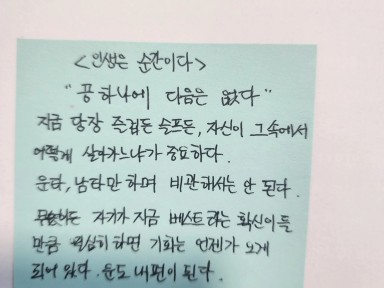 <인생은 순간이다>
"공 하나에 다음은 없다"
지금 당장 즐겁든 슬프든, 자신이 그 속에서
어떻게 살아가느냐가 중요하다.
운타, 남타만 하며 비관해서는 안 된다.
자기가 지금 베스트라는 확신이 들
만큼 열심히 하면 기회는 언젠가 오게
되어 있다. 운도 내편이 된다.